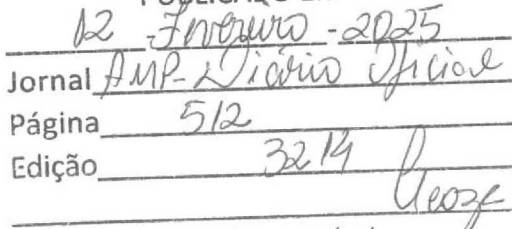 PUBLICADO EM
12 - Fevereiro - 2025
Jornal AMP - Diário Oficial
Página 512
Edição 3214